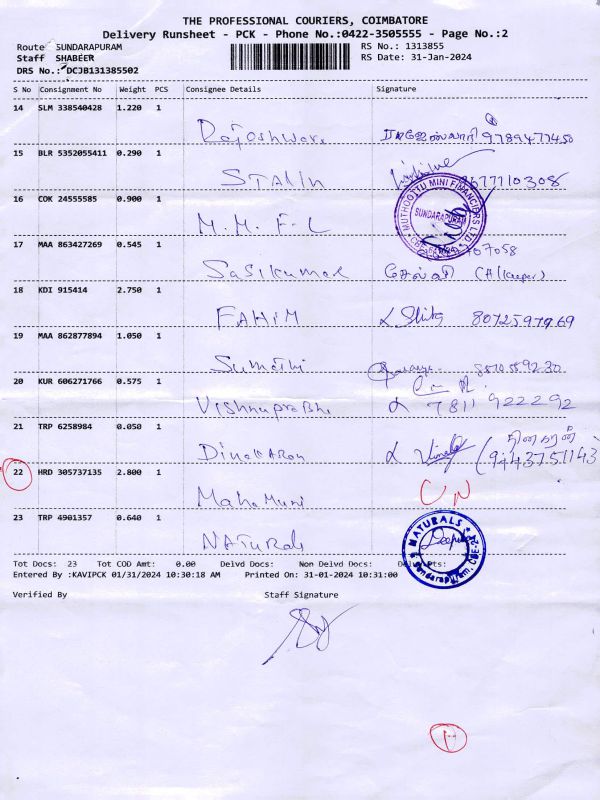 THE PROFESSIONAL COURIERS, COIMBATORE
Delivery Runsheet - PCK - Phone No.:0422-3505555 - Page No.:2
Route SUNDARAPURAM RS No.: 1313855
Staff SHABEER RS Date: 31-Jan-2024
DRS No.: DCJB131385502
S No Consignment No Weight PCS Consignee Details Signature
14 SLM 338540428 1.220 1
Rajeshwari ராஜேஸ்வரி 9789477450
15 BLR 5352055411 0.290 1
STALIN
16 COK 24555585 0.900 1
MUTHOOTTU MINI FINANCIERS LTD.
SUNDARAPURAM
M.M.F-L
17 MAA 863427269 0.545 1
Sasikumar
18 KDI 915414 2.750 1
FAHIM 8072597969
19 MAA 862877894 1.050 1
Sumathi
20 KUR 606271766 0.575 1
Vishnuprabhu 7811922292
21 TRP 6258984 0.050 1
தினகரன்
Dinakaran 9443751143
22 HRD 305737135 2.800 1
CN
Maha Muni
23 TRP 4901357 0.640 1
NATURALS
Sundarapuram, CBE-24
Naturals
Tot Docs: 23 Tot COD Amt: 0.00 Delvd Docs: Non Delvd Docs:
Entered By :KAVIPCK 01/31/2024 10:30:18 AM Printed On: 31-01-2024 10:31:00
Verified By Staff Signature